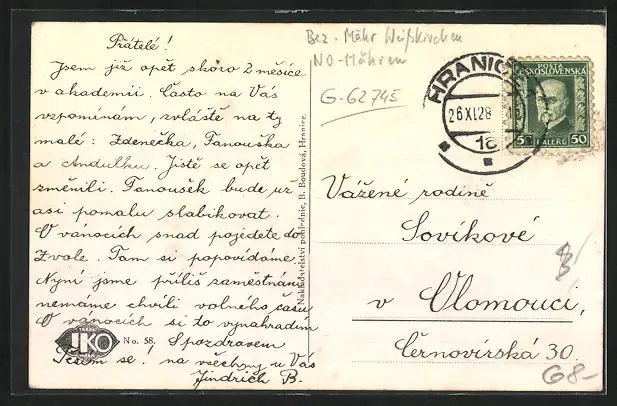 Přátelé!
Jsem již opět skoro 2 měsíce
v akademii. Často na Vás
vzpomínám, zvláště na ty
malé: Zdenečka, Fanouška
a Andulku. Jistě se opět
změnili. Fanoušek bude už
asi pomalu slabikovat.
O vánocích snad pojedete do
Zvole. Tam si popovídáme.
Nyní jsme příliš zaměstnáni
nemáme chvíli volného času
O vánocích si to vynahradím
Spozdravem
Těším se! na všechny u Vás
Jindřich B.
JKO
No. 58.
Nakladatelství pohlednic, B. Boudová, Hranice.
Bez. Mähr Weißkirchen
NO-Mähren
G-62745
HRANICE
26 XI 28
POSTA
ČESKOSLOVENSKÁ
50 HALERU 50
Vážené rodině
Sovíkové
v Olomouci,
Černovírská 30.
G8-